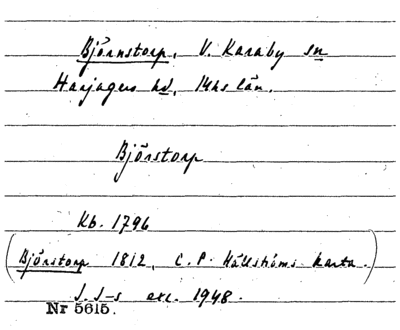 Björnstorp, V. Karaby sn
Harjagers hd, Mhs län.
Björstorp
Kb. 1796
(Björstorp 1812, C. P. Hällströms karta.)
J. S-s exc. 1948.
Nr 5615.